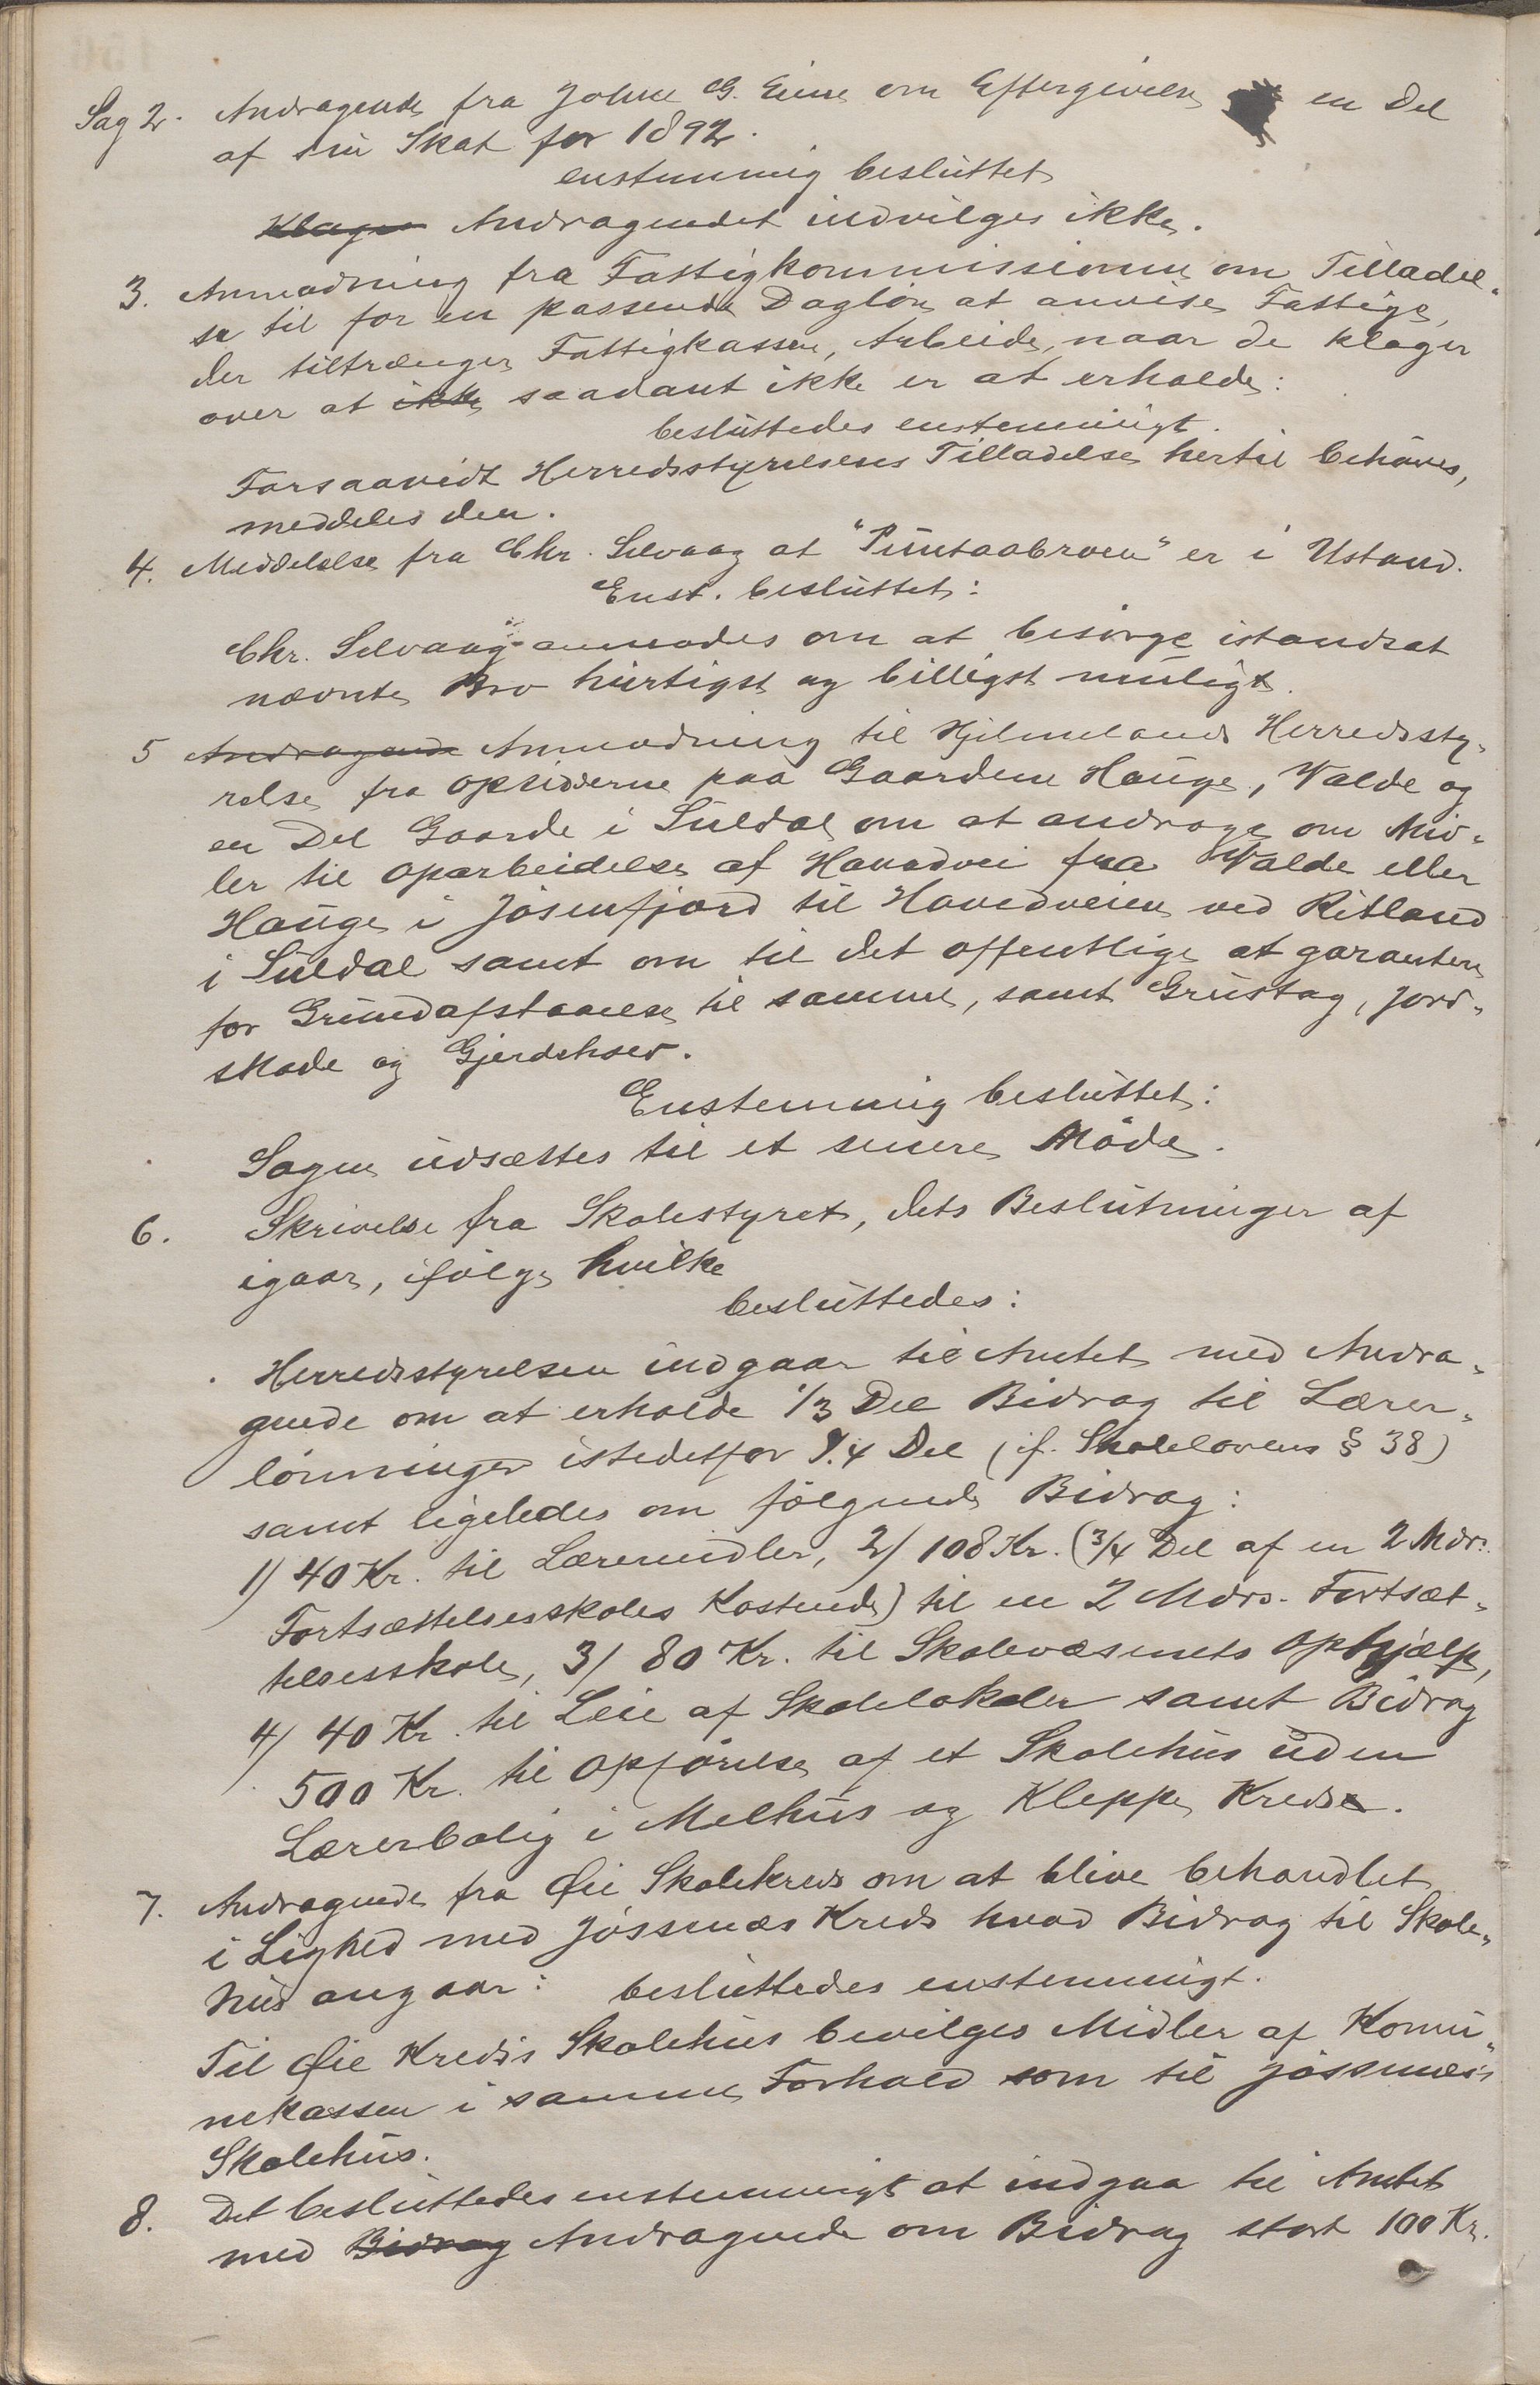 Sag 2. Andragende fra John G. Eime om Eftergivelse en Del
af sin Skat for 1892.
enstemmig besluttet
Klagen Andragendet indvilges ikke.
3. Anmodning fra Fattigkommissionen om Tilladel-
se til for en passende Dagløn at anvise Fattige,
der tiltrænger Fattigkassen, Arbeide, naar de klager
over at ikke saadant ikke er at erholde:
besluttedes enstemmigt.
Forsaavidt Herredsstyrelsens Tilladelse hertil behøves,
meddeles den.
4. Meddelelse fra Chr. Selvaag at "Puntaabroen" er i Ustand.
Enst. besluttet:
Chr. Selvaag anmodes om at besørge istandsat
nævnte Bro hurtigst og billigst muligt.
5 Andragende Anmodning til Hjelmelands Herredssty-
relse fra Opsidderne paa Gaardene Hauge, Valde og
en Del Gaarde i Suldal om at andrage om Mid-
ler til Oparbeidelse af Hovedvei fra Valde eller
Hauge i Jøsenfjord til Hovedveien ved Ritland
i Suldal samt om til det offentlige at garantere
for Grundafstaaelse til samme, samt Grustag, Jord-
skade og Gjerdehold.
Enstemmig besluttet:
Sagen udsættes til et senere Møde.
6. Skrivelse fra Skolestyret, dets Beslutninger af
igaar, ifølge hvilke
besluttedes:
Herredsstyrelsen indgaar til Amtet med Andra-
gende om at erholde 1/3 Del Bidrag til Lærer-
lønninger istedetfor 1/4 Del (jf. Skolelovens § 38)
samt ligeledes om følgende Bidrag:
1) 40 Kr. til Læremidler, 2) 108 Kr. (3/4 Del af en 2 Mdrs.
Fortsættelsesskoles Kostende) til en 2 Mdrs. Fortsæt-
telsesskole, 3) 80 Kr. til Skolevæsenets Ophjælp,
4) 40 Kr. til Leie af Skolelokaler samt Bidrag
500 Kr. til Opførelse af et Skolehus uden
Lærerbolig i Melhus og Kleppe Kreds.
7. Andragende fra Øie Skolekreds om at blive behandlet
i Lighed med Jøssenæs Kreds hvad Bidrag til Skole-
hus angaar: besluttedes enstemmigt.
Til Øie Kredis Skolehus bevilges Midler af Komu-
nekassen i samme Forhold som til Jøssenæs's
Skolehus.
8. Det besluttedes enstemmigt at indgaa til Amtet
med Bidrag Andragende om Bidrag stort 100 Kr.